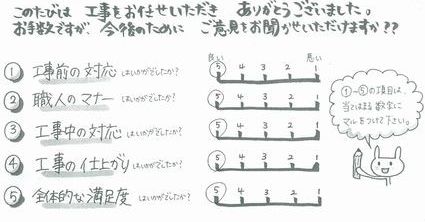 このたびは 工事をお任せいただき ありがとうございました。
お手数ですが、今後のために ご意見をお聞かせいただけますか??
良い 悪い
① 工事前の対応 はいかがでしたか? 5 4 3 2 1
② 職人のマナー はいかがでしたか? 5 4 3 2 1
③ 工事中の対応 はいかがでしたか? 5 4 3 2 1
④ 工事の仕上がり はいかがでしたか? 5 4 3 2 1
⑤ 全体的な満足度 はいかがでしたか? 5 4 3 2 1
①~⑤の項目は、
当てはまる数字に
マルをつけて下さい。